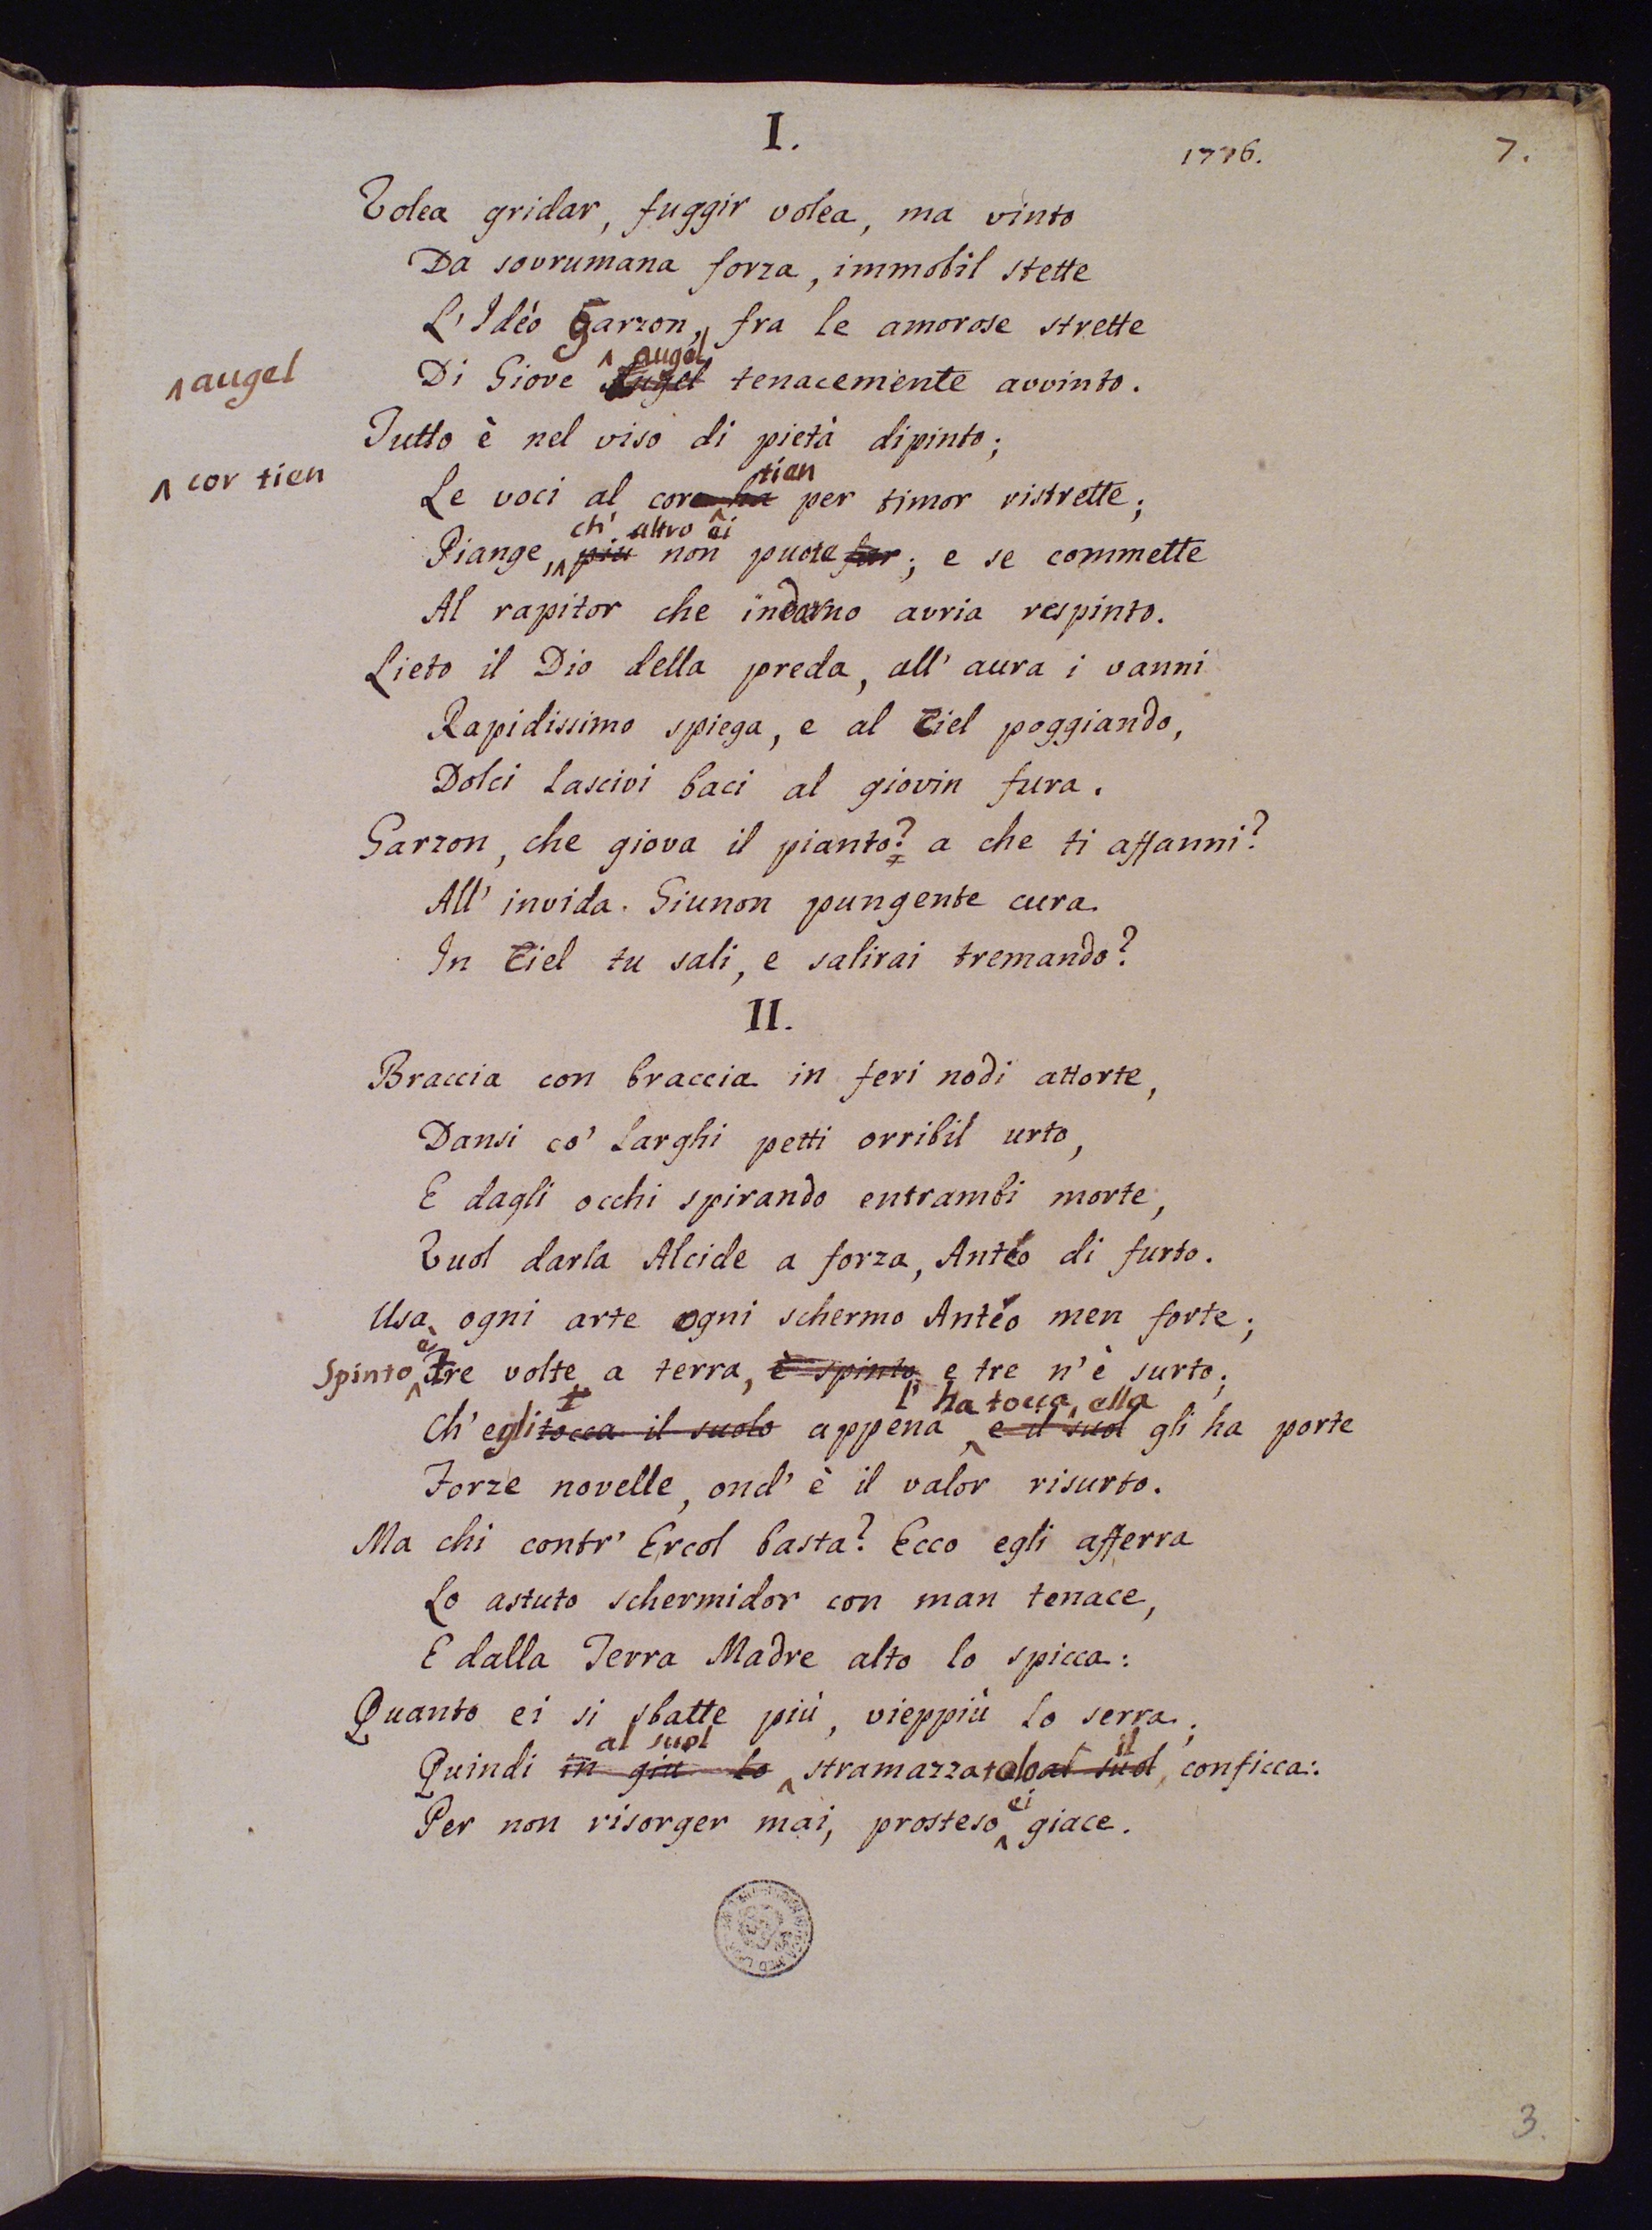 I.
1776.
7.
Volea gridar, fuggir volea, ma vinto
Da sovrumana forza, immobil stette
L'Idéo Garzon, fra le amorose strette
augel
augel
Di Giove Augel tenacemente avvinto.
Tutto è nel viso di pietà dipinto;
cor tien
tien
Le voci al core ha per timor ristrette;
ch' altro ei
Piange, più non puote far; e se commette
Al rapitor che indarno avria respinto.
Lieto il Dio della preda, all' aura i vanni
Rapidissimo spiega, e al Ciel poggiando,
Dolci lascivi baci al giovin fura.
Garzon, che giova il pianto? a che ti affanni?
All' invida Giunon pungente cura
In Ciel tu sali, e salirai tremando?
II.
Braccia con braccia in feri nodi attorte,
Dansi co' larghi petti orribil urto,
E dagli occhi spirando entrambi morte,
Vuol darla Alcide a forza, Antéo di furto.
Usa ogni arte ogni schermo Antéo men forte;
è
Spinto Tre volte a terra, è spinto e tre n'è surto;
l' ha tocca, ella
Ch'egli tocca il suolo appena, e il suol gli ha porte
Forze novelle, ond' è il valor risurto.
Ma chi contr' Ercol basta? Ecco egli afferra
Lo astuto schermidor con man tenace,
E dalla Terra Madre alto lo spicca:
Quanto ei si sbatte più, vieppiù lo serra;
al suol il
Quindi in giù lo stramazzatolo al suol, conficca:
ei
Per non risorger mai, prosteso giace.
3.